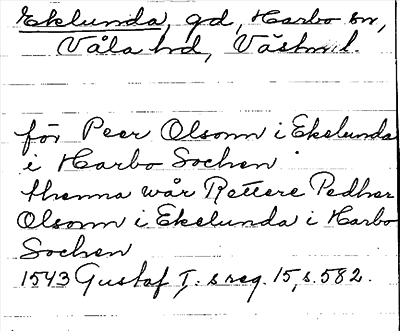 Ekelunda, gd, Harbo sn,
Våla hd, Västm. l.
för Peer Olsonn i Ekelunda
i Harbo Sochen
thenna wår Rettere Pedher
Olsonn i Ekelunda i Harbo
Sochen
1543 Gustaf I: s reg. 15, s. 582.